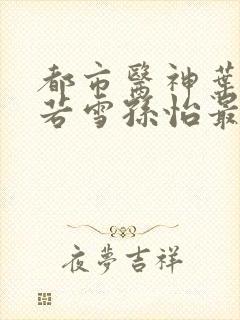 都市醫神葉
若雪孫怡最
夜夢吉祥